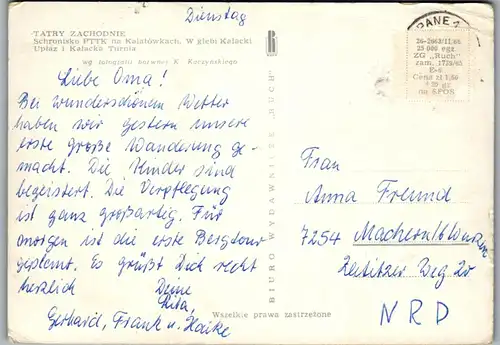 Dienstag
TATRY ZACHODNIE
Schronisko PTTK na Kalatówkach. W głębi Kalacki
Upłaz i Kalacka Turnia
wg fotografii barwnej K. Korzyńskiego
Liebe Oma!
Bei wunderschönem Wetter
haben wir gestern unsere
erste große Wanderung ge-
macht. Die Kinder sind
begeistert. Die Verpflegung
ist ganz großartig. Für
morgen ist die erste Bergtour
geplant. Es grüßt Dich recht
herzlich Deine
Rita,
Gerhard, Frank u. Heike
BIURO WYDAWNICZE „RUCH"
26-2662/II/65
25 000 egz.
ZG „Ruch"
Cena zł 1,60
+ 20 gr
na SFOS
PANE
Frau
Anna Freund
7254 Machern
Zeititzer Weg 20
NRD
Wszelkie prawa zastrzeżone